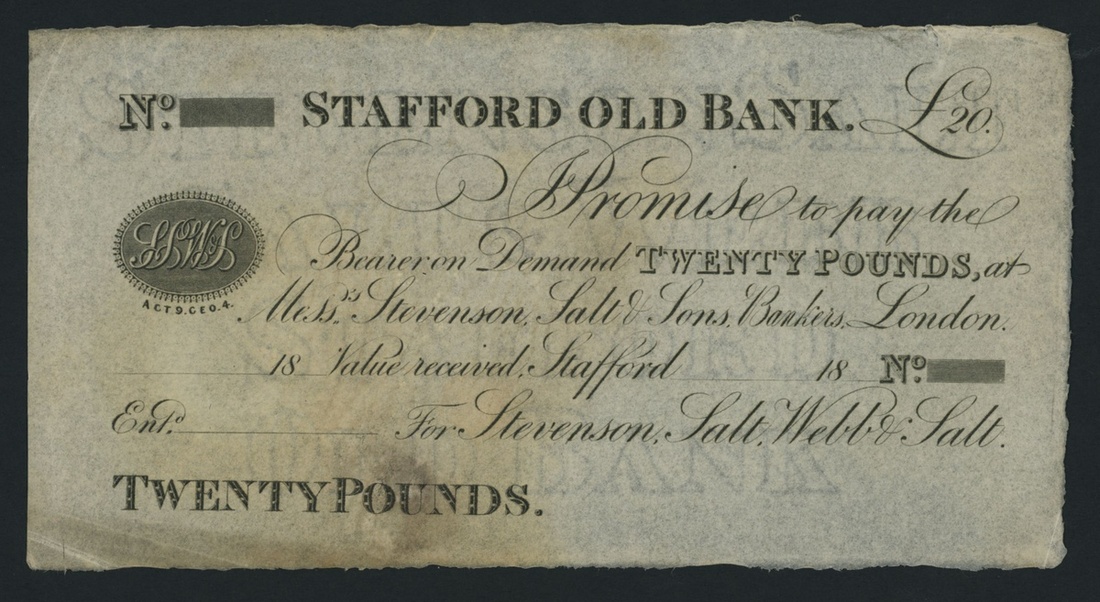 No. STAFFORD OLD BANK. £20.
I Promise to pay the
Bearer on Demand TWENTY POUNDS, at
Mess.rs Stevenson, Salt & Sons, Bankers, London.
ACT. 9. GEO. 4.
18 Value received, Stafford 18 No.
Ent.d For Stevenson, Salt, Webb & Salt.
TWENTY POUNDS.